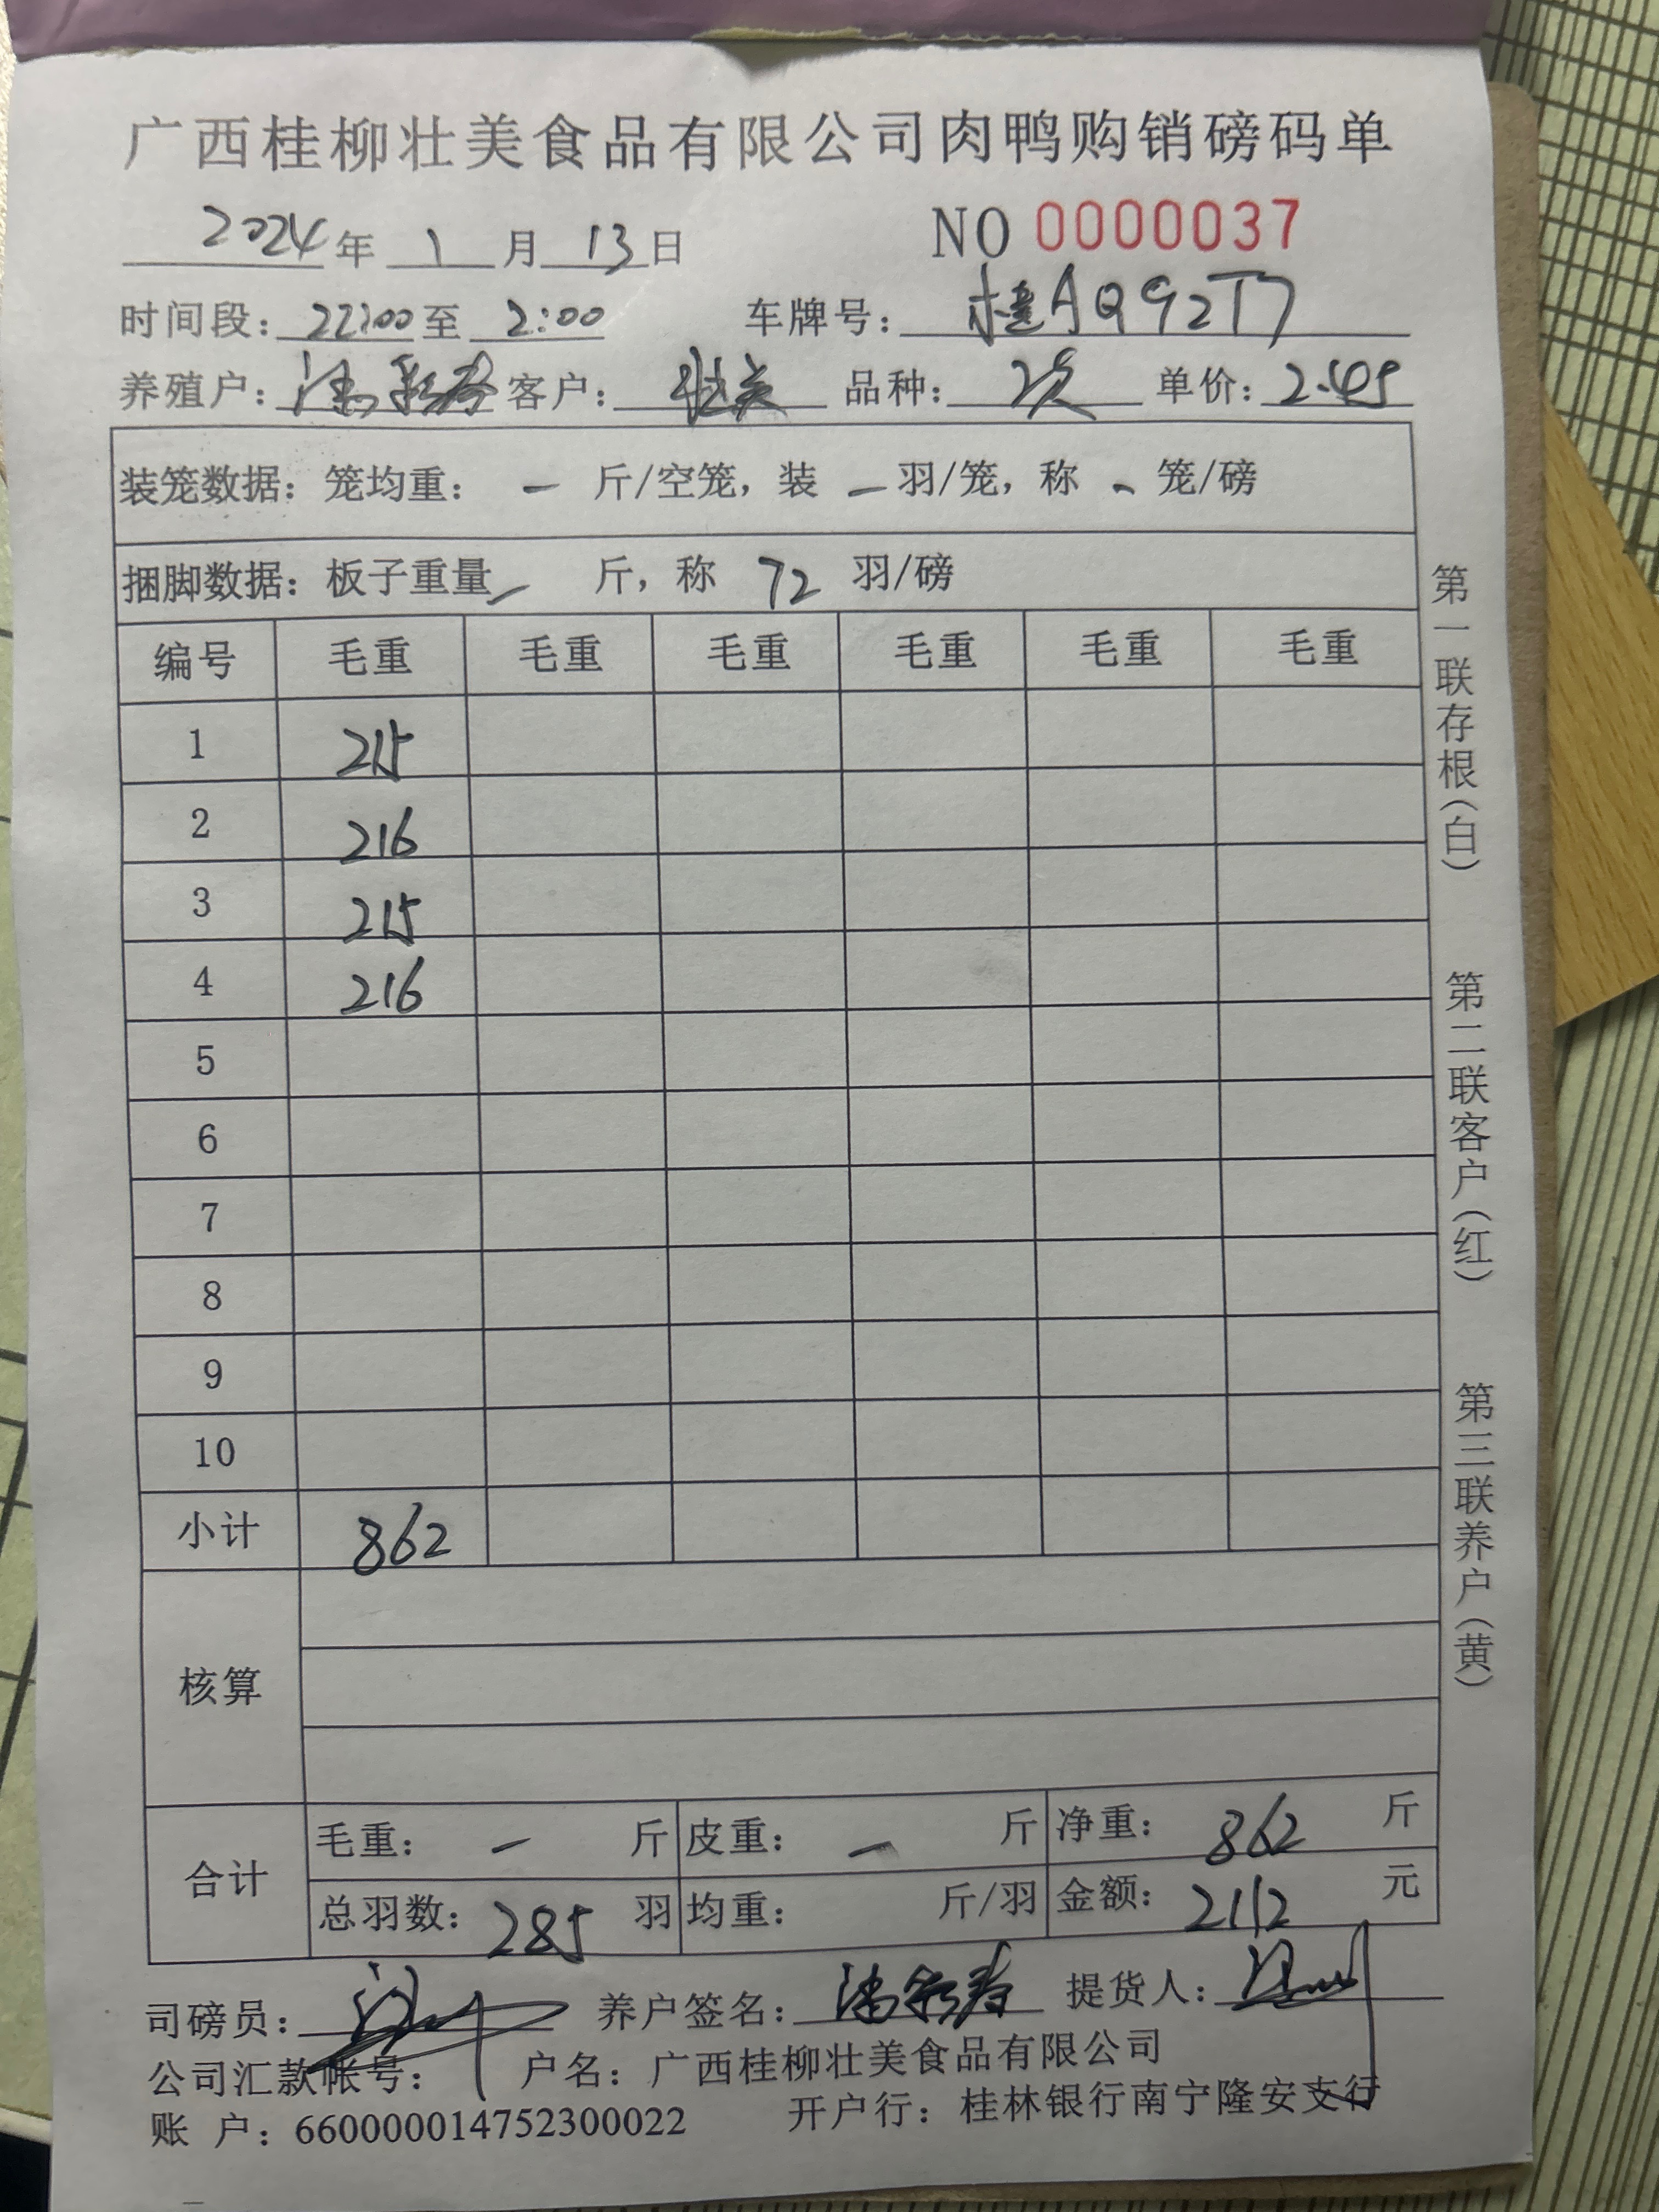 广西桂柳壮美食品有限公司肉鸭购销磅码单
2024年 1月 13日 NO 0000037
时间段：22:00至 2:00 车牌号：桂AQ92T7
养殖户： 客户：壮美 品种：次 单价：2.45
装笼数据：笼均重：— 斤/空笼，装 — 羽/笼，称 - 笼/磅
捆脚数据：板子重量 — 斤，称 72 羽/磅
编号 毛重 毛重 毛重 毛重 毛重 毛重
1 215
2 216
3 215
4 216
5
6
7
8
9
10
小计 862
核算
合计 毛重：— 斤 皮重：— 斤 净重：862 斤
总羽数：285 羽 均重： 斤/羽 金额：2112 元
司磅员： 养户签名： 提货人：
公司汇款帐号： 户名：广西桂柳壮美食品有限公司
账 户：660000014752300022 开户行：桂林银行南宁隆安支行
第一联存根（白） 第二联客户（红） 第三联养户（黄）